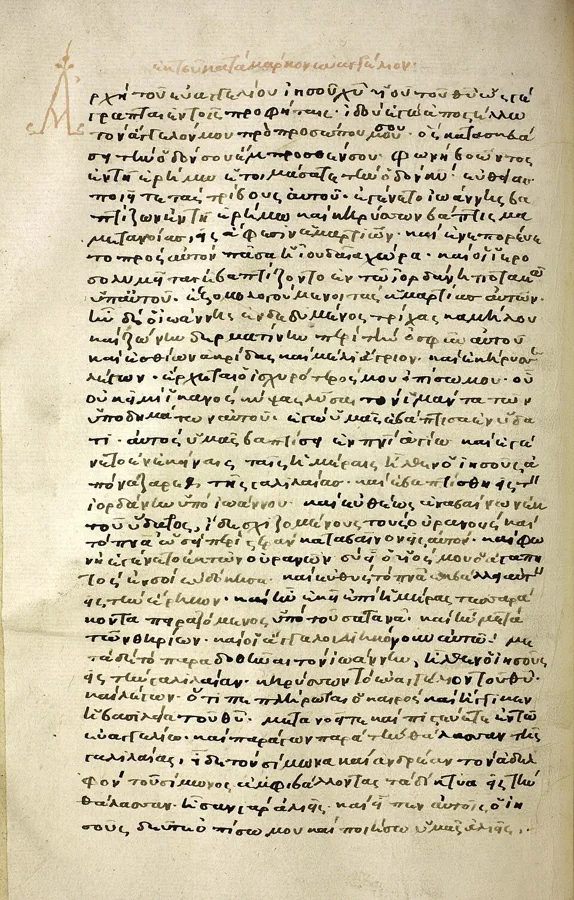 ἐκ τοῦ κατὰ μάρκον εὐαγγέλιον·
Ἀρχὴ τοῦ εὐαγγελίου ἰησοῦ χυ υἱοῦ τοῦ θυ ὡς γέ
γραπται ἐν τοῖς προφήταις· ἰδοὺ ἐγὼ ἀποστέλλω
τὸν ἄγγελόν μου πρὸ προσώπου σου· ὃς κατασκευά
ση τὴν ὁδόν σου ἔμπροσθέν σου· φωνὴ βοῶντος
ἐν τῇ ἐρήμω ἑτοιμάσατε τὴν ὁδὸν κυ· εὐθείας
ποιῆτε τὰς τρίβους αὐτοῦ· ἐγένετο ἰωάννης βα
πτίζων ἐν τῇ ἐρήμω καὶ κηρύσσων βάπτισμα
μετανοίας εἰς ἄφεσιν ἁμαρτιῶν· καὶ ἐξεπορεύε
το πρὸς αὐτὸν πᾶσα ἡ ἰουδαία χώρα· καὶ οἱ ἱερο
σολυμῆται ἐβαπτίζοντο ἐν τῶ ἰορδάνη ποταμῶ
ὑπ' αὐτοῦ· ἐξομολογούμενοι τὰς ἁμαρτίας αὐτῶν·
ἦν δὲ ὁ ἰωάννης ἐνδεδυμένος τρίχας καμήλου
καὶ ζώνην δερματίνην περὶ τὴν ὀσφὺν αὐτοῦ
καὶ ἐσθίων ἀκρίδας καὶ μέλι ἄγριον· καὶ ἐκήρυσσε
λέγων· ἔρχεται ὁ ἰσχυρότερός μου ὀπίσω μου· οὗ
οὐκ εἰμὶ ἱκανὸς κύψας λῦσαι τὸν ἱμάντα τῶν
ὑποδημάτων αὐτοῦ· ἐγὼ ὑμᾶς ἐβάπτισα ἐν ὕδα
τι· αὐτὸς ὑμᾶς βαπτίσει ἐν πνι ἁγίω καὶ ἐγέ
νετο ἐν ἐκείναις ταῖς ἡμέραις ἦλθεν ὁ ἰησοῦς ἀ
πὸ ναζαρὲθ τῆς γαλιλαίας· καὶ ἐβαπτίσθη εἰς τὸν
ἰορδάνην ὑπὸ ἰωάννου· καὶ εὐθέως ἀναβαίνων ἐκ
τοῦ ὕδατος, ἴδε σχιζομένους τοὺς οὐρανοὺς καὶ
τὸ πνα ὡσεὶ περιστερὰν καταβαῖνον εἰς αὐτόν· καὶ φω
νὴ ἐγένετο ἐκ τῶν οὐρανῶν σὺ εἶ ὁ υἱός μου ὁ ἀγαπη
τὸς ἐν σοὶ εὐδόκησα· καὶ εὐθὺς τὸ πνα ἐκβάλλει αὐτὸν
εἰς τὴν ἔρημον· καὶ ἦν ἐκεῖ ἐπὶ ἡμέρας τεσσαρά
κοντα πειραζόμενος ὑπὸ τοῦ σατανᾶ· καὶ ἦν μετὰ
τῶν θηρίων· καὶ οἱ ἄγγελοι διηκόνουν αὐτῶ· με
τὰ δὲ τὸ παραδοθῆναι τὸν ἰωάννην, ἦλθεν ὁ ἰησοῦς
εἰς τὴν γαλιλαίαν· κηρύσσων τὸ εὐαγγέλιον τοῦ θυ·
καὶ λέγων· ὅτι πεπλήρωται ὁ καιρὸς καὶ ἤγγικεν
ἡ βασιλεία τοῦ θυ· μετανοεῖτε καὶ πιστεύετε ἐν τῶ
εὐαγγελίω· καὶ παράγων παρὰ τὴν θάλασσαν τῆς
γαλιλαίας, ἴδε τὸν σίμωνα καὶ ἀνδρέαν τὸν ἀδελ
φὸν τοῦ σίμωνος ἀμφιβάλλοντας τὰ δίκτυα εἰς τὴν
θάλασσαν· ἦσαν γὰρ ἁλιεῖς· καὶ εἶπεν αὐτοῖς ὁ ἰη
σοῦς, δεῦτε ὀπίσω μου καὶ ποιήσω ὑμᾶς ἁλιεῖς,·